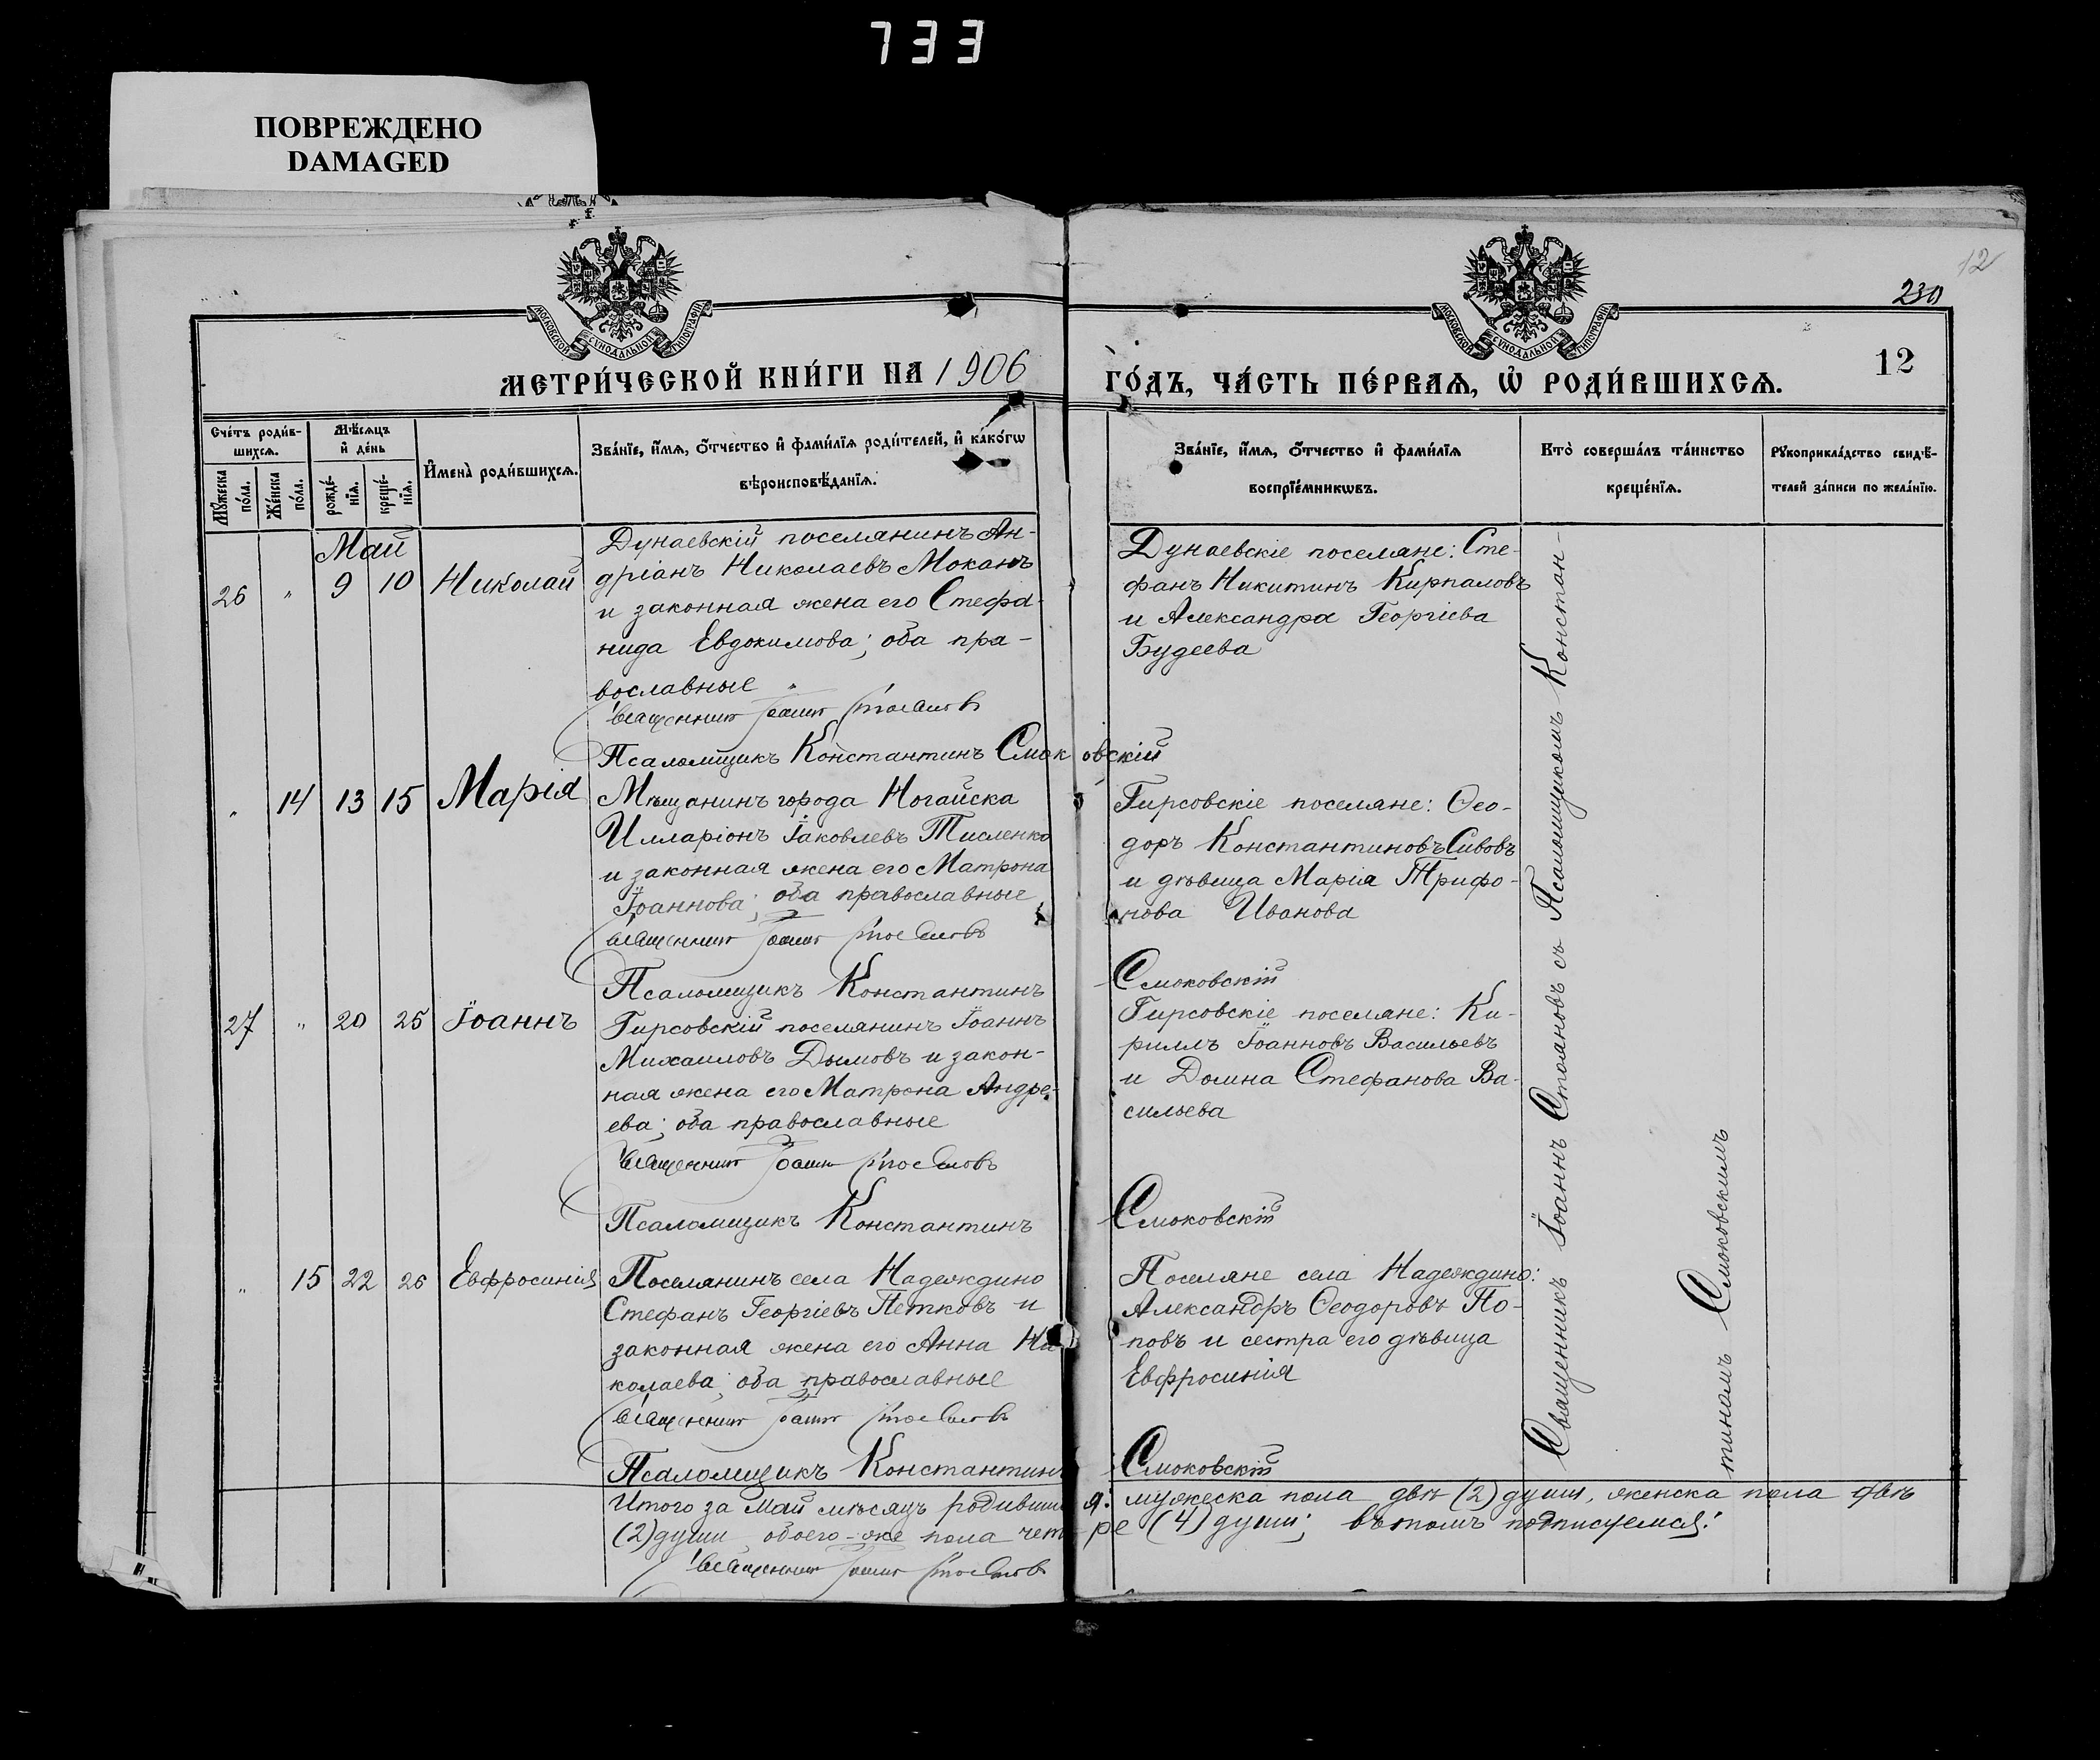 733
ПОВРЕЖДЕНО
DAMAGED
12
230
МОСКОВСКОЙ СѴНОДАЛЬНОЙ ТИПОГРАФІИ
МОСКОВСКОЙ СѴНОДАЛЬНОЙ ТИПОГРАФІИ
МЕТРИ́ЧЕСКОЙ КНИ́ГИ НА 1906
ГО́ДЪ, ЧА́СТЬ ПЕ́РВАѦ, Ѡ҆ РОДИ́ВШИХСѦ.
12
Сче́тъ роди́в-
шихсѧ.
Мꙋ́жеска по́ла.
Же́нска по́ла.
Мѣ́сѧцъ
и҆ де́нь
рожде́-
нїѧ.
креще́-
нїѧ.
И҆мена̀ роди́вшихсѧ.
Зва́нїе, и҆́мѧ, ѻ҆́тчество и҆ фами́лїѧ роди́телей, и҆ како́гѡ
вѣроисповѣ́данїѧ.
Зва́нїе, и҆́мѧ, ѻ҆́тчество и҆ фами́лїѧ
воспрїе́мникѡвъ.
Кто̀ соверша́лъ та́инство
креще́нїѧ.
Рꙋкоприкла́дство свидѣ́-
телей за́писи по жела́нїю.
Май
26 " 9 10 Николай
Дунаевскій поселянинъ Ан-
дріанъ Николаевъ Моканъ
и законная жена его Стефа-
нида Евдокимова; оба пра-
вославные
Священникъ Іоаннъ Стояновъ
Псаломщикъ Константинъ Смоковскій
Дунаевскіе поселяне: Сте-
фанъ Никитинъ Кирпаловъ
и Александра Георгіева
Будеева
" 14 13 15 Марія
Мѣщанинъ города Ногайска
Илларіонъ Іаковлевъ Тисленко
и законная жена его Матрона
Іоаннова; оба православные
Священникъ Іоаннъ Стояновъ
Псаломщикъ Константинъ Смоковскій
Гирсовскіе поселяне: Ѳео-
доръ Константиновъ Сивовъ
и дѣвица Марія Трифо-
нова Иванова
27 " 20 25 Іоаннъ
Гирсовскій поселянинъ Іоаннъ
Михаиловъ Дымовъ и закон-
ная жена его Матрона Андре-
ева; оба православные
Священникъ Іоаннъ Стояновъ
Псаломщикъ Константинъ Смоковскій
Гирсовскіе поселяне: Ки-
риллъ Іоанновъ Васильевъ
и Домна Стефанова Ва-
сильева
" 15 22 26 Евфросинія
Поселянинъ села Надеждино
Стефанъ Георгіевъ Петковъ и
законная жена его Анна Ни
колаева; оба православные
Священникъ Іоаннъ Стояновъ
Псаломщикъ Константинъ Смоковскій
Поселяне села Надеждино:
Александръ Ѳеодоровъ По-
повъ и сестра его дѣвица
Евфросинія
Священникъ Іоаннъ Стояновъ съ Псаломщикомъ Констан-
тиномъ Смоковскимъ
Итого за Май мѣсяцъ родившихся: мужеска пола двѣ (2) души, женска пола двѣ
(2) души, обоего-же пола четыре (4) души; въ томъ подписуемся:
Священникъ Іоаннъ Стояновъ